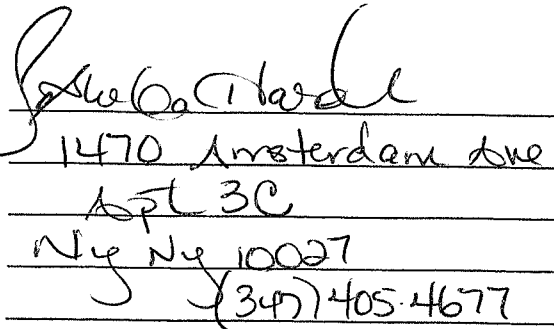 1470 Amsterdam Ave
Apt 3C
Ny Ny 10027
(347) 405-4677